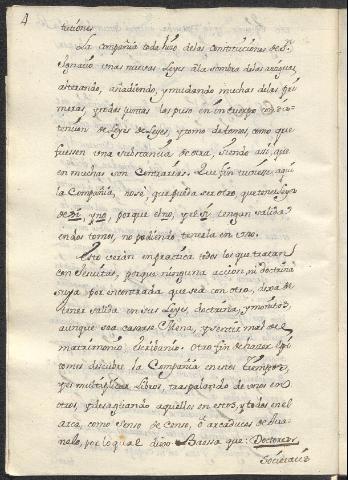 4
tuciones.
La Compañia toda hizo de las Constituciones de S.
Ignacio unas nuevas Leyes à la sombra de las antiguas,
alterando, añadiendo, y mudando muchas de las pri
meras, y todas juntas las puso en un cuerpo con
de Leyes de Leyes, y tomo de tomos, como que
fuessen una substancia de otra, siendo assi, que
en muchas son Contrarias. Que fin tuviesse, aqui
la Compañia, no sè, que pueda ser otro, que tener Leyes
de si, y no, porque el no, y el si, tengan salida
en dos tomos, no pudiendo tenerla en uno.
Esto verán en practica todos los que tratan
con Jesuitas, porque ninguna accion, ni doctrina
suya por encontrada que sea con otra, dexa de
tener salida en sus Leyes, doctrina, y
aunque sea casarse Elena, y sentir mal de el
matrimonio Escribanio. Otro fin de hazer Epi
tomes descubre la Compañia en estos tiempos,
y es multiplicar Libros, traspalando de unos en
otros, y desaguando aquellos en estos, y todos en el
arca, como Senso de Censo, ò arcaduces de
por lo qual dixo Baessa que: Doctores
Societatis